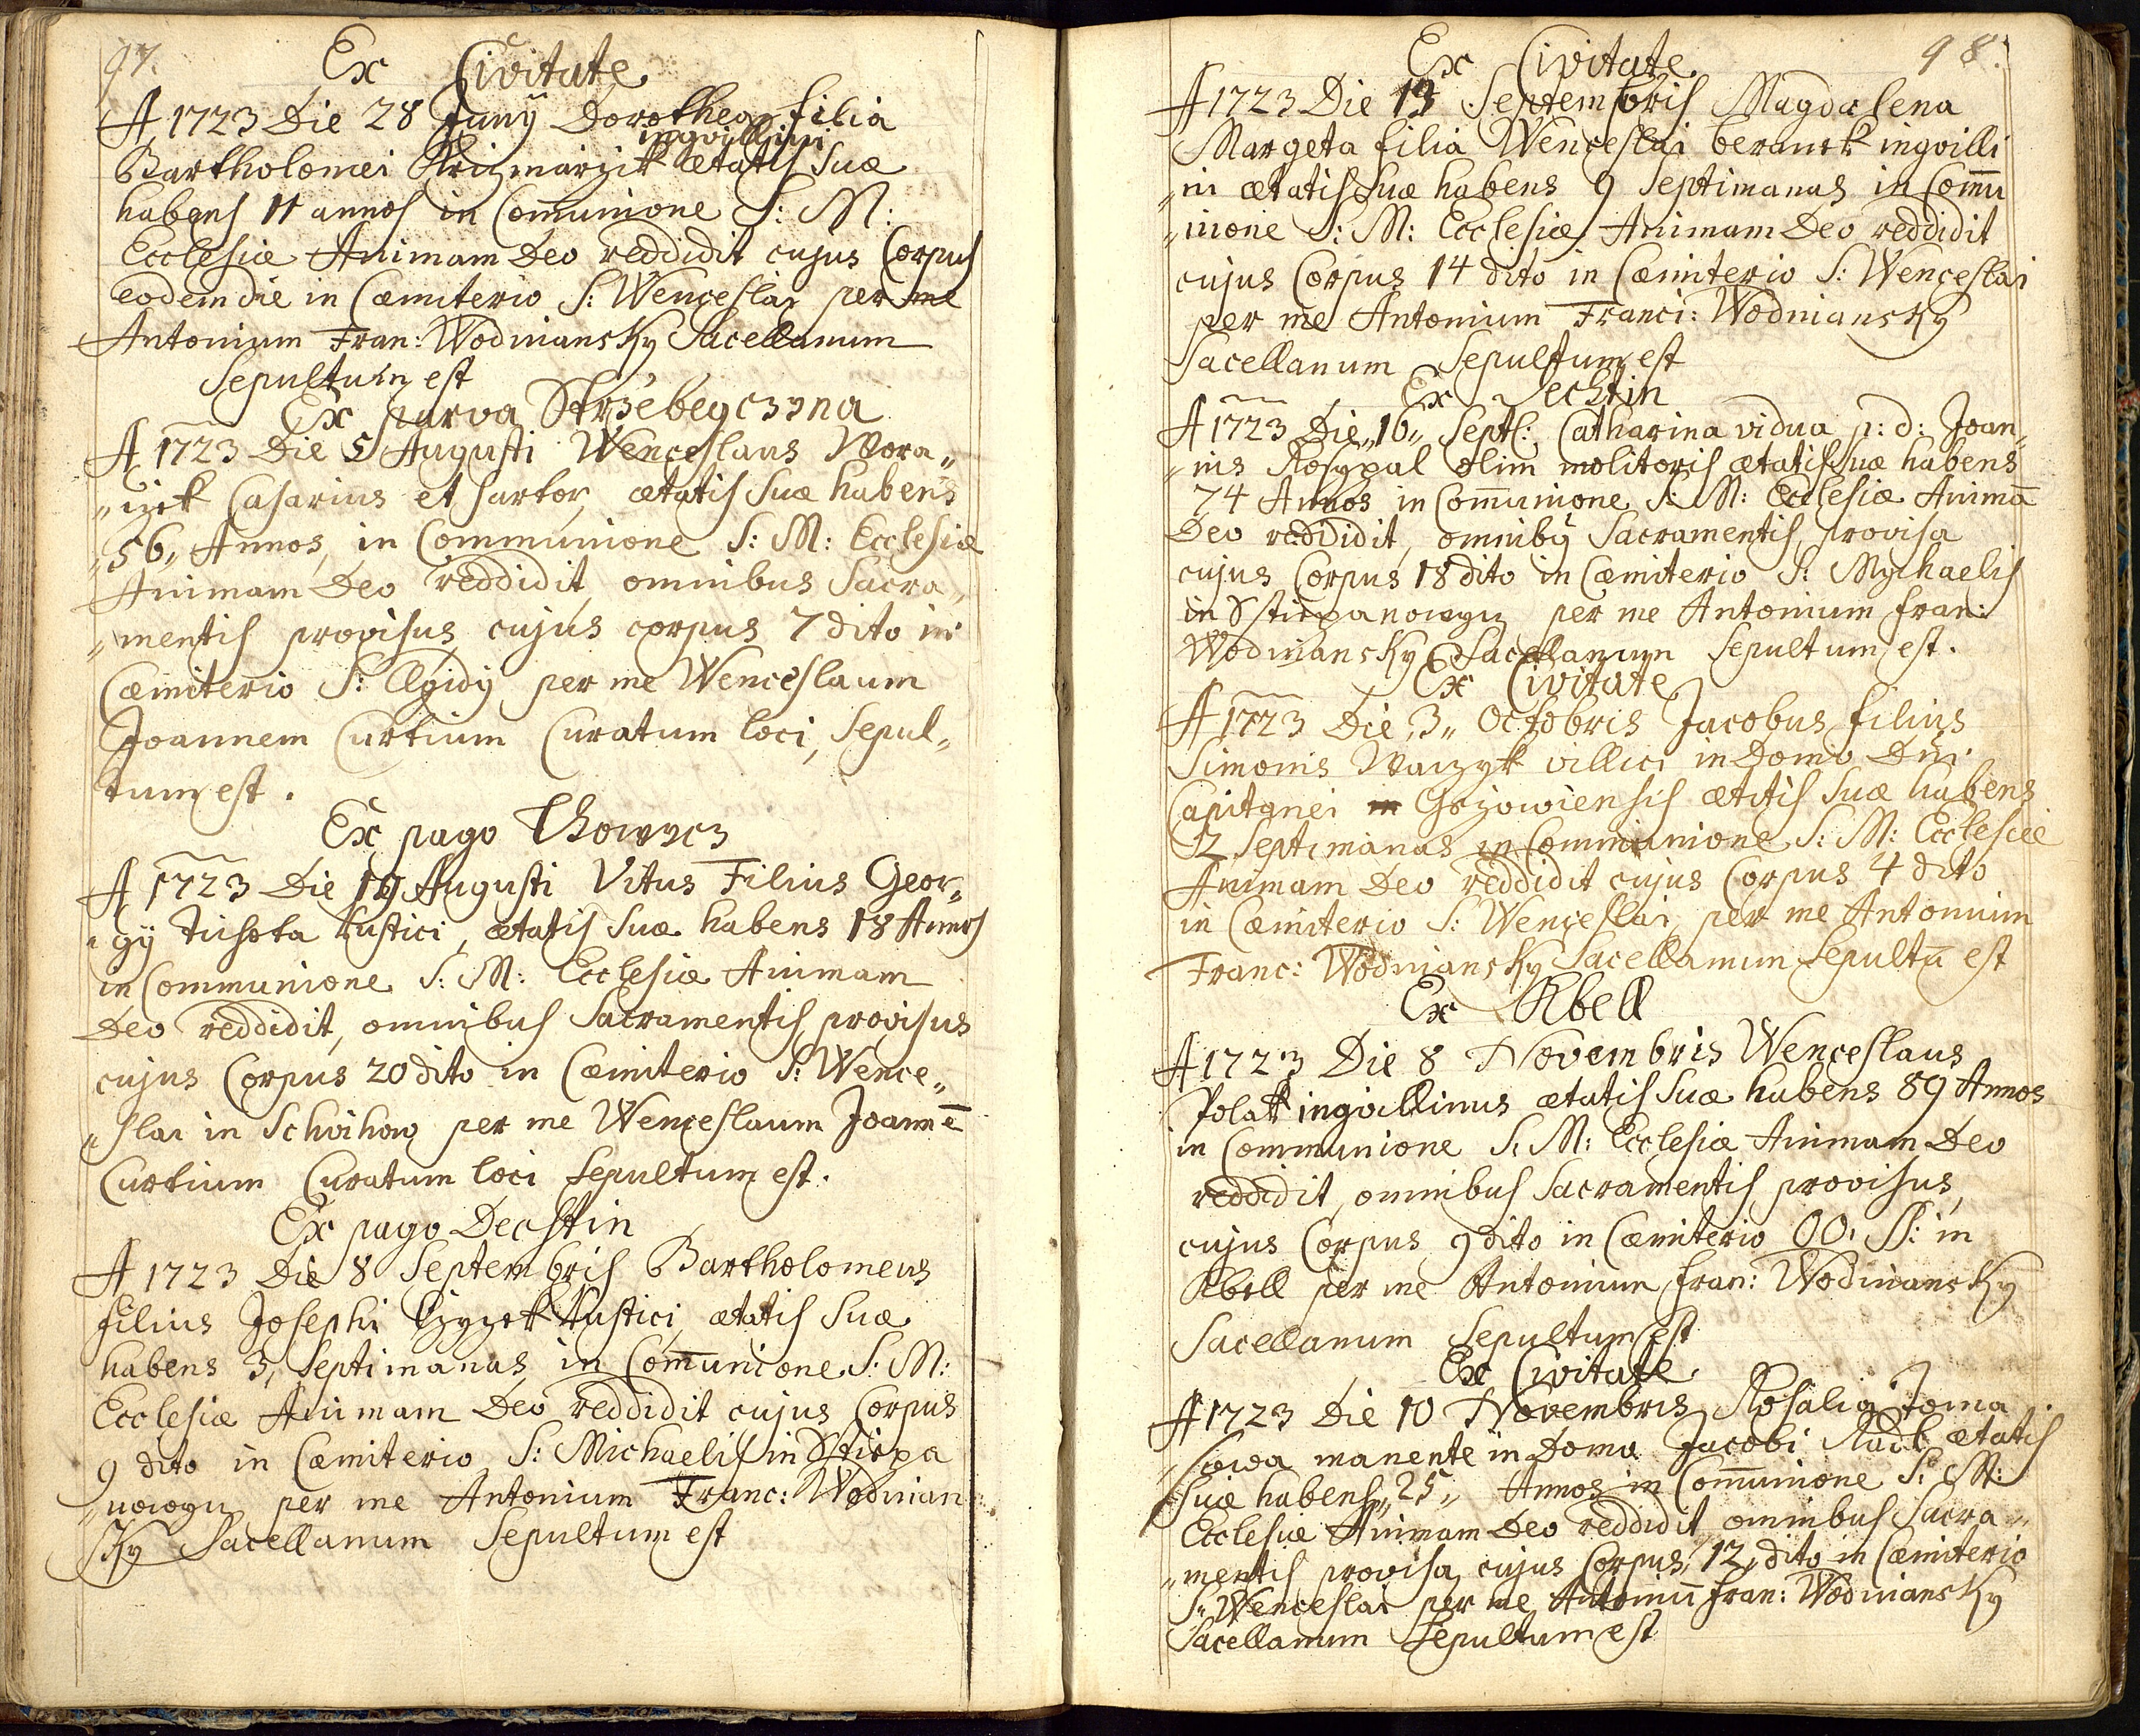 97.
Ex Civitate
A 1723 Die 28 Junÿ Dorothea filia
ingvillini
Bartholomei Krizmarzik ætatis suæ
habens 11 annos in Com̄unione S: M:
Ecclesiæ Animam Deo reddidit cujus Corpus
eodem die in Cæmiterio S: Wenceslai per me
Antonium Fran: Wodniansky Sacellanum
Sepultum est
Ex parva Strzebeyczyna
A 1723 Die 5 Augusti Wenceslaus Wora„
„izek Casarius et sartor, ætatis suæ habens
„56„ Annos, in Communione S: M: Ecclesiæ
Animam Deo reddidit, omnibus Sacra„
„mentis provisus, cujus corpus 7 dito in
Cæmiterio S: Ægidÿ per me Wenceslaum
Joannem Curtium Curatum loci, Sepul„
tum est.
Ex pago
A 1723 Die 19 Augusti Vitus Filius Geor„
„gÿ Tuhota Rustici, ætatis suæ habens 18 Annos
in Communione S: M: Ecclesiæ Animam
Deo reddidit, omnibus Sacramentis provisus
cujus Corpus 20 dito in Cæmiterio S: Wence„
„slai in Schvihow per me Wenceslaum Joannē
Curtium Curatum loci Sepultum est.
Ex pago Dechtin
A 1723 Die 8 Septembris Bartholomeus
filius Josephi Czyzek Rustici, ætatis suæ
habens 3, septimanas, in Com̄unione S: M:
Ecclesiæ Animam Deo reddidit cujus Corpus
9 dito in Cæmiterio S: Michaelis in Stiepa
„nowgu per me Antonium Franc: Wodnian
sky Sacellanum Sepultum est
98.
Ex Civitate
A 1723 Die 13 Septembris Magdalena
Margeta filia Wenceslai beranek ingvilli
„ni ætatis suæ habens 9 septimanas in Com̄u
„nione S: M: Ecclesiæ Animam Deo reddidit
cujus Corpus 14 dito in Cæmiterio S: Wenceslai
per me Antonium Franci: Wodniansky
Sacellanum Sepultum est
Ex Dechtin
A 1723 Die „16„ Septl: Catharina vidua p: d: Joan„
„nis Rosypal olim molitoris ætatis suæ habens
74 Annos in Com̄unione S: M: Ecclesiæ Animā
Deo reddidit, omnibÿ Sacramentis, provisa
cujus Corpus 18 dito in Cæmiterio S: Mychaelis
in Sstiepanowgu per me Antonium fran:
Wodniansky Sacellanum Sepultum est.
Ex Civitate
A 1723 Die „3„ Octobris Jacobus filius
Simonis Waczyk villici in Domo Dn̄i
Capitanei Gozowiensis ætatis suæ habens
12 septimanas in Communione S: M: Ecclesiæ
Animam Deo reddidit cujus Corpus 4 dito
in Cæmiterio S: Wenceslai per me Antonium
Franc: Wodniansky Sacellanum Sepultū est
Ex Kbell
A 1723 Die 8 Novembris Wenceslaus
Polak ingvillinus ætatis suæ habens 89 Annos
in Communione S: M: Ecclesiæ Animam Deo
reddidit, omnibus Sacramentis provisus,
cujus Corpus 9 dito in Cæmiterio OO. SS: in
Kbell per me Antonium fran: Wodniansky
Sacellanum Sepultum est
Ex Civitate
A 1723 Die 10 Novembris Rosalia Toma
„ssowa manente in Domo Jacobi ætatis
suæ habens „25„ Annos in Com̄unione S: M:
Ecclesiæ Animam Deo reddidit omnibus Sacra„
„mentis provisa, cujus Corpus, 12„ dito in Cæmiterio
S: Wenceslai per me Antoniū fran: Wodniansky
Sacellanum Sepultum est